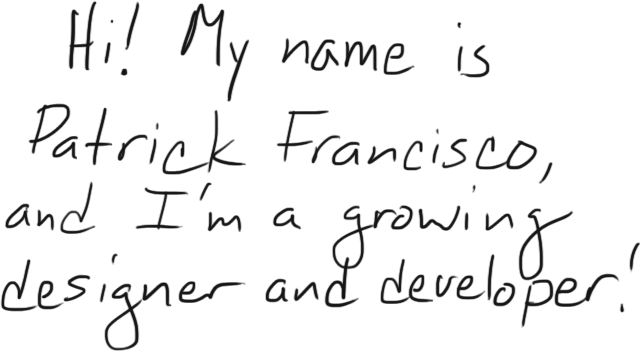 Hi! My name is
Patrick Francisco,
and I'm a growing
designer and developer!